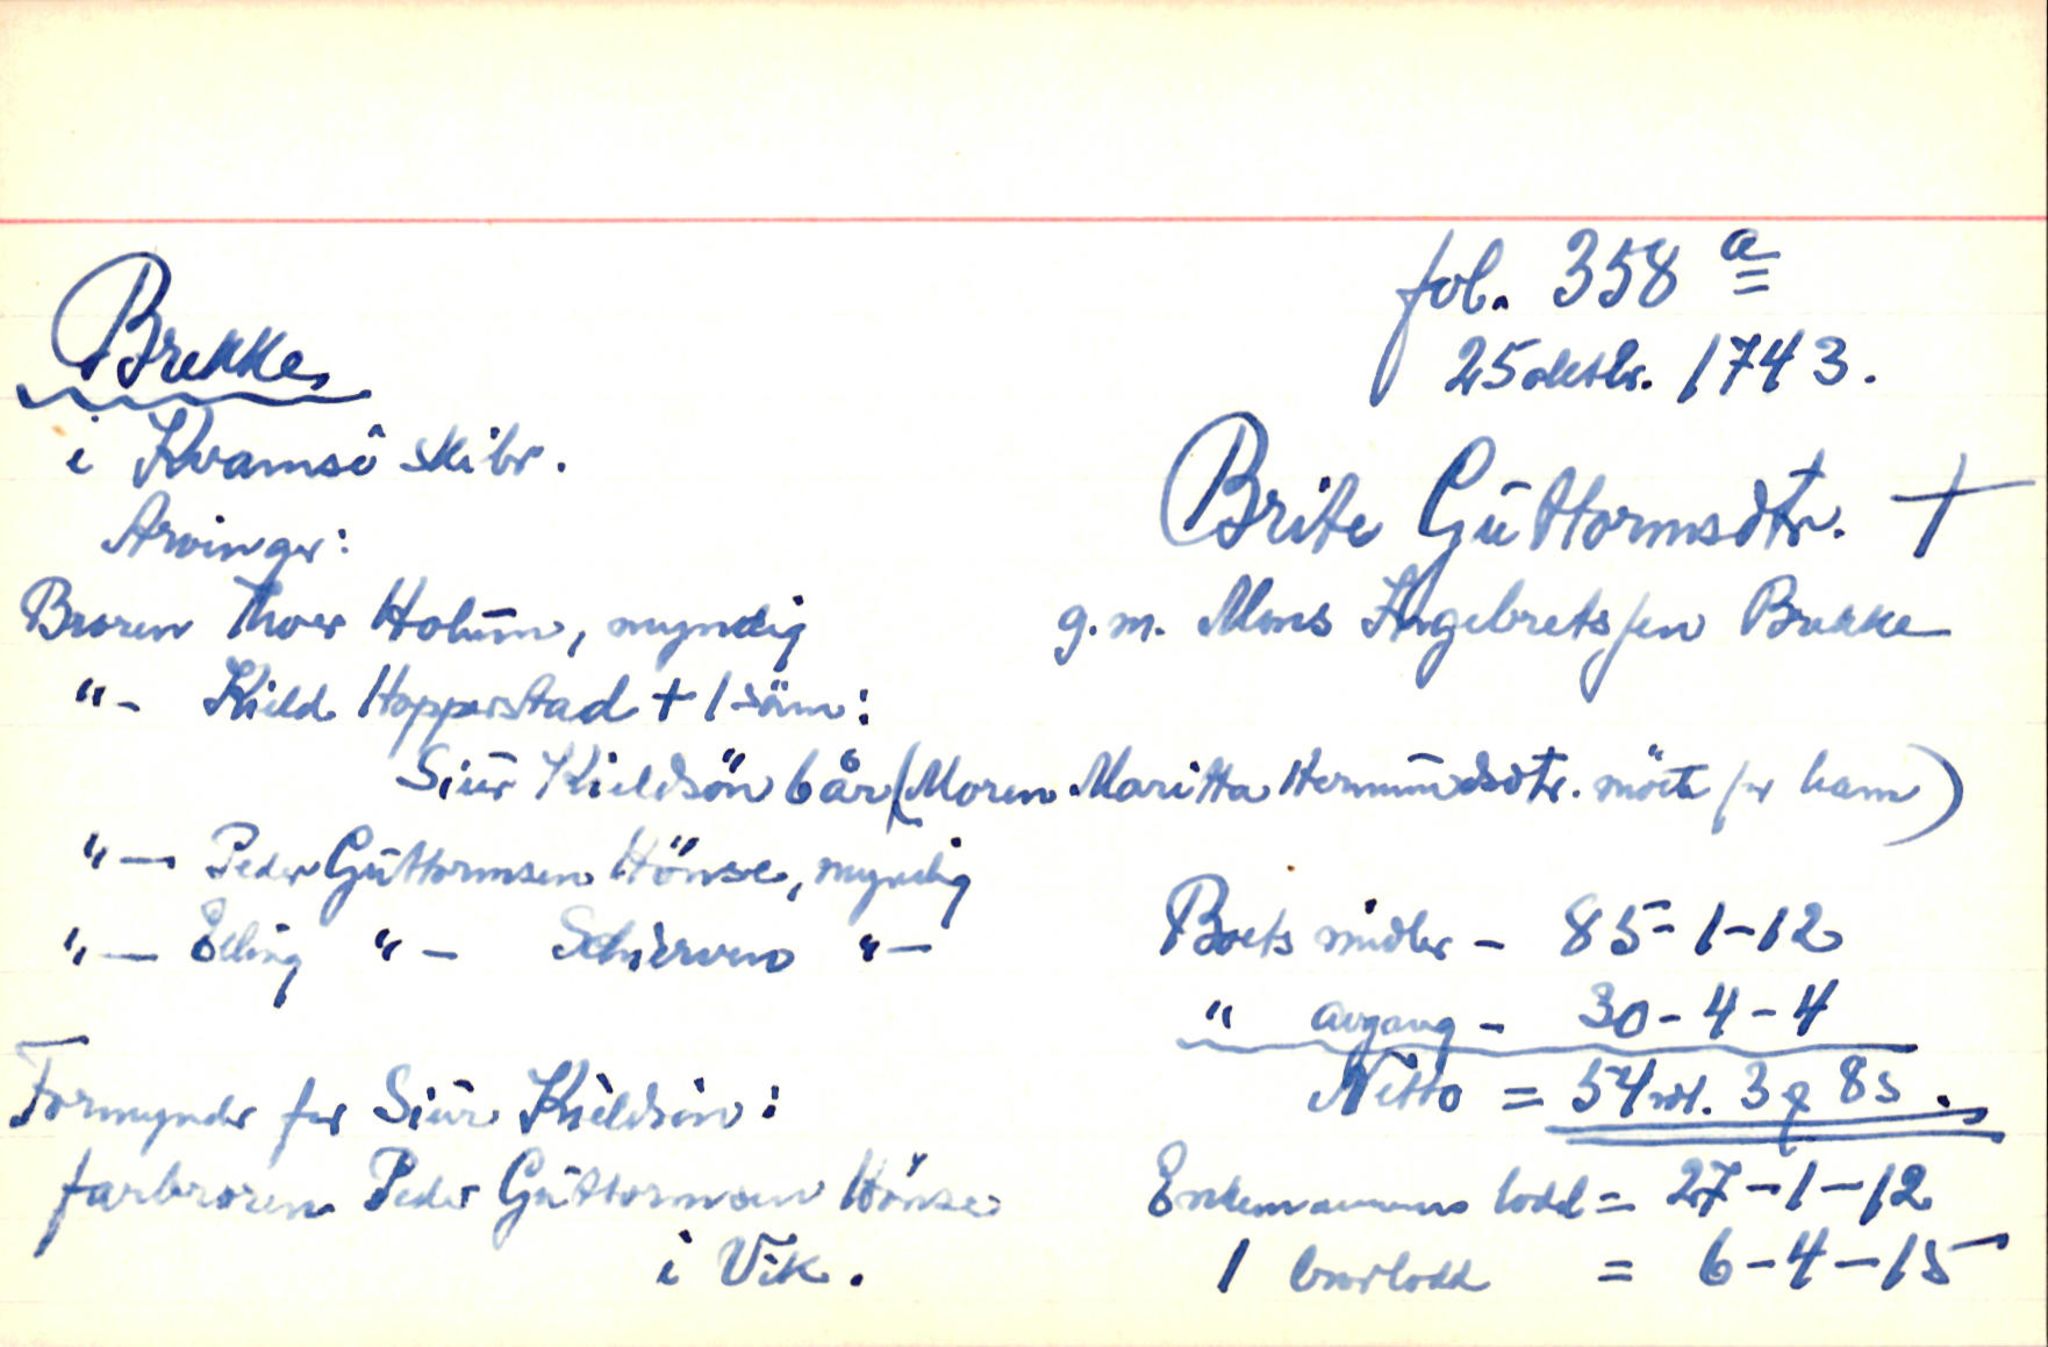 fol. 358 a
25 oktbr. 1743.
Brekke
i Kvamsö skibr.
Brite Guttormsdtr. †
g.m. Mons Ingebretssen Brekke
Arvinger:
Broren Thoer Holum, myndig
"- Kield Hopperstad + 1 sön:
Siur Kieldsön 6 år (Moren Maritta Hermundsdtr. mötte for ham)
"— Peder Guttormsen Hönse, myndig
"— Elling "— Schierven "—
Boets midler — 85-1-12
" avgang — 30-4-4
Netto = 54 rdl. 3 ʠ 8 s.
Formynder for Siur Kieldsön:
farbroren Peder Guttormsen Hönse
i Vik.
Enkemannens lodd = 27-1-12
1 brorlodd = 6-4-15